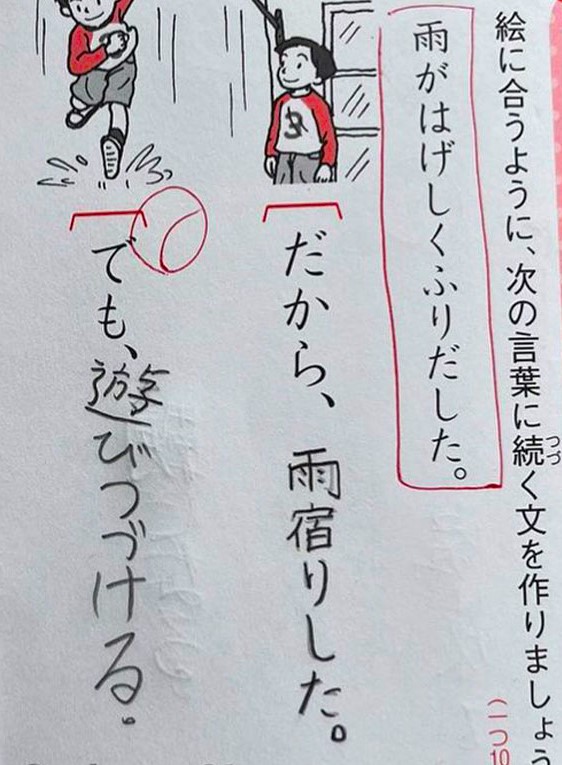 絵に合うように、次の言葉に続く文を作りましょう
つづ
(一つ10
雨がはげしくふりだした。
だから、雨宿りした。
でも、遊びつづける。